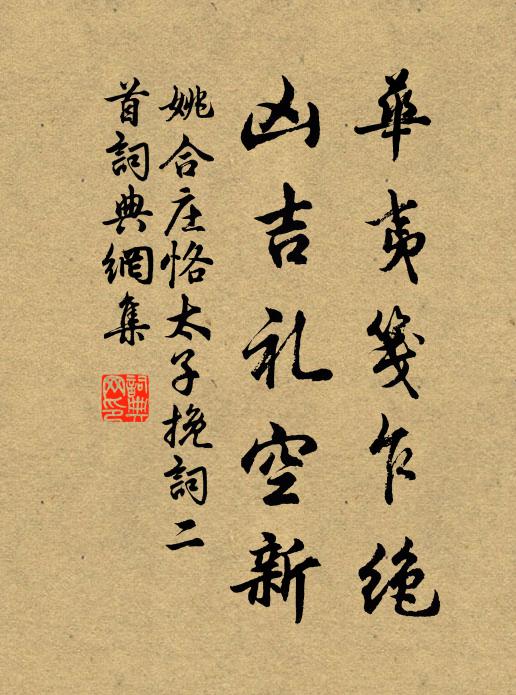 華夷箋乍絶
凶吉礼空新
姚合庄恪太子挽詞二
首詞典網集
詞典网印